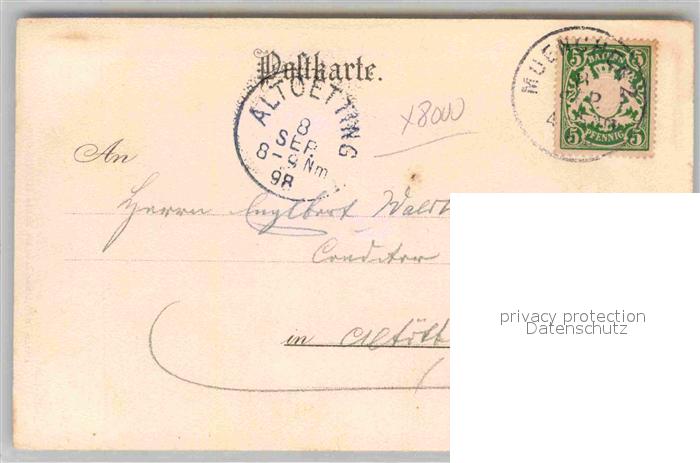 Postkarte.
ALTOETTING
8
SEP.
8-9 Nm
98
MUENCH
BAYERN
5 5
5 5
PFENNIG
x8000
An
Herrn Englbert
Conditor
in Altött
privacy protection
Datenschutz